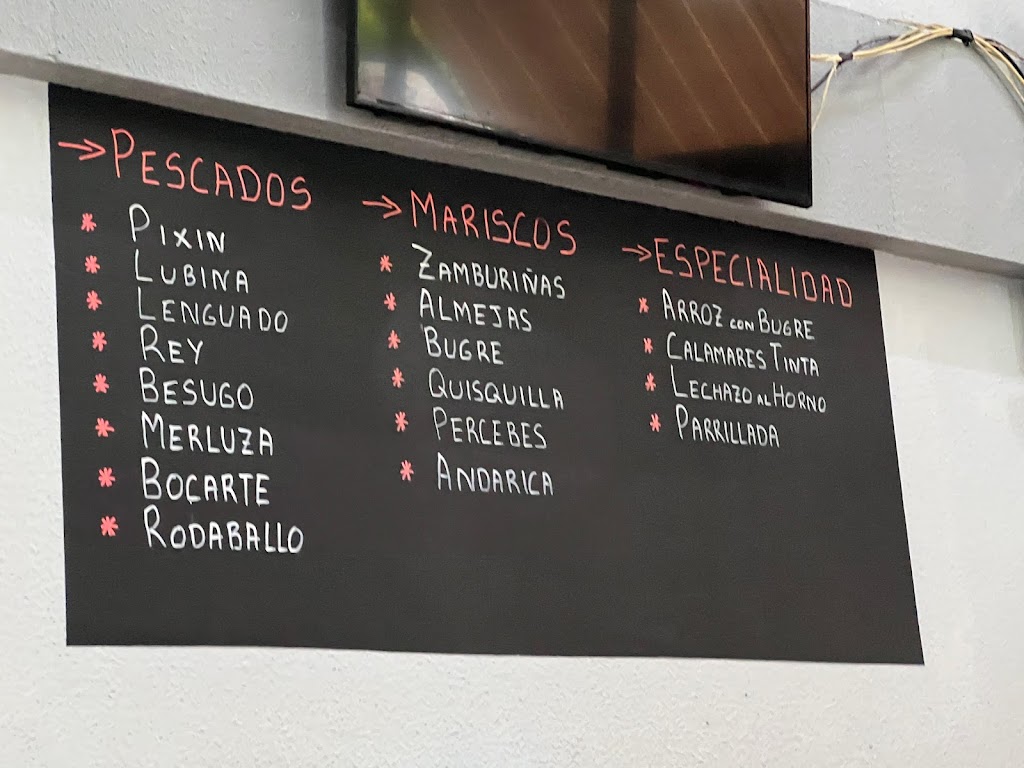 → PESCADOS
* PIXIN
* LUBINA
* LENGUADO
* REY
* BESUGO
* MERLUZA
* BOCARTE
* RODABALLO
→ MARISCOS
* ZAMBURIÑAS
* ALMEJAS
* BUGRE
* QUISQUILLA
* PERCEBES
* ANDARICA
→ ESPECIALIDAD
* ARROZ CON BUGRE
* CALAMARES TINTA
* LECHAZO AL HORNO
* PARRILLADA